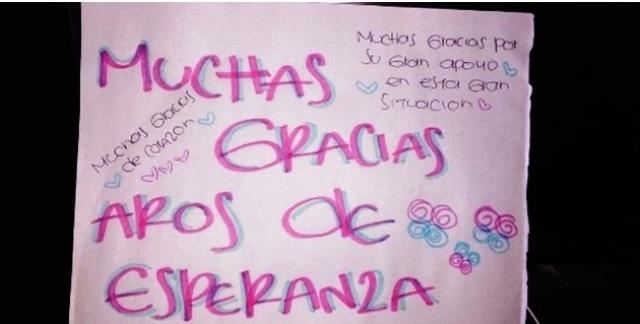 MUCHAS
GRACIAS
AROS DE
ESPERANZA
Muchas Gracias por
su Gran apoyo
en esta Gran
situacion
Muchas Gracias
de corazon